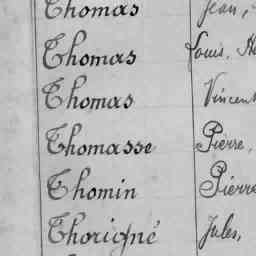 Thomas Jean,
Thomas Louis,
Thomas Vincent
Thomasse Pierre,
Thomin Pierre
Thorigné Jules,